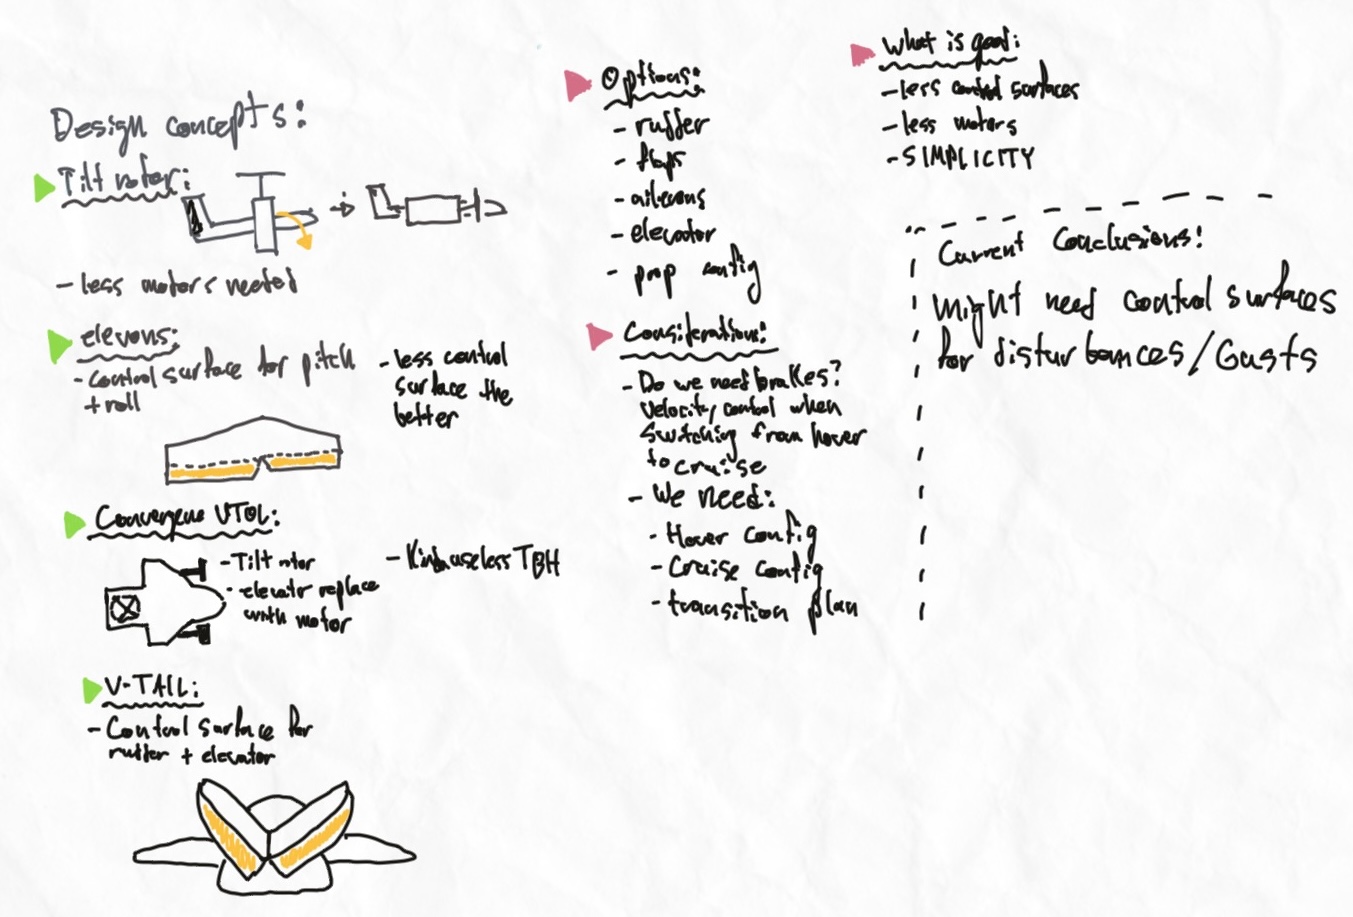 Design concepts:
Tilt rotor:
- less motors needed
elevons:
- Control surface for pitch
+ roll
- less control
surface the
better
Convergene VTOL:
- Tilt rotor
- elevator replace
with motor
- Kinda useless TBH
V-TAIL:
- Control surface for
rutter + elevator
Options:
- rudder
- flaps
- ailerons
- elevator
- prop config
Considerations:
- Do we need brakes?
Velocity control when
switching from hover
to cruise
- We need:
- Hover config
- Cruise config
- transition plan
What is good:
- less control surfaces
- less motors
- SIMPLICITY
Current Conclusions:
might need control surfaces
for disturbances/Gusts